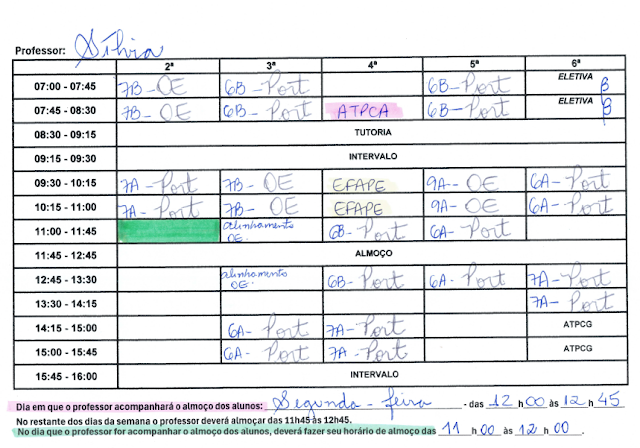 Professor: Sílvia
2ª 3ª 4ª 5ª 6ª
07:00 - 07:45 7B - OE 6B - Port 6B - Port ELETIVA β
07:45 - 08:30 7B - OE 6B - Port ATPCA 6B - Port ELETIVA β
08:30 - 09:15 TUTORIA
09:15 - 09:30 INTERVALO
09:30 - 10:15 7A - Port 7B - OE EFAPE 9A - OE 6A - Port
10:15 - 11:00 7A - Port 7B - OE EFAPE 9A - OE 6A - Port
11:00 - 11:45 alinhamento OE. 6B - Port 6A - Port
11:45 - 12:45 ALMOÇO
12:45 - 13:30 alinhamento OE. 6B - Port 6A - Port 7A - Port
13:30 - 14:15 7A - Port
14:15 - 15:00 6A - Port 7A - Port ATPCG
15:00 - 15:45 6A - Port 7A - Port ATPCG
15:45 - 16:00 INTERVALO
Dia em que o professor acompanhará o almoço dos alunos: Segunda - feira - das 12 h 00 às 12 h 45
No restante dos dias da semana o professor deverá almoçar das 11h45 às 12h45.
No dia que o professor for acompanhar o almoço dos alunos, deverá fazer seu horário de almoço das 11 h 00 às 12 h 00.